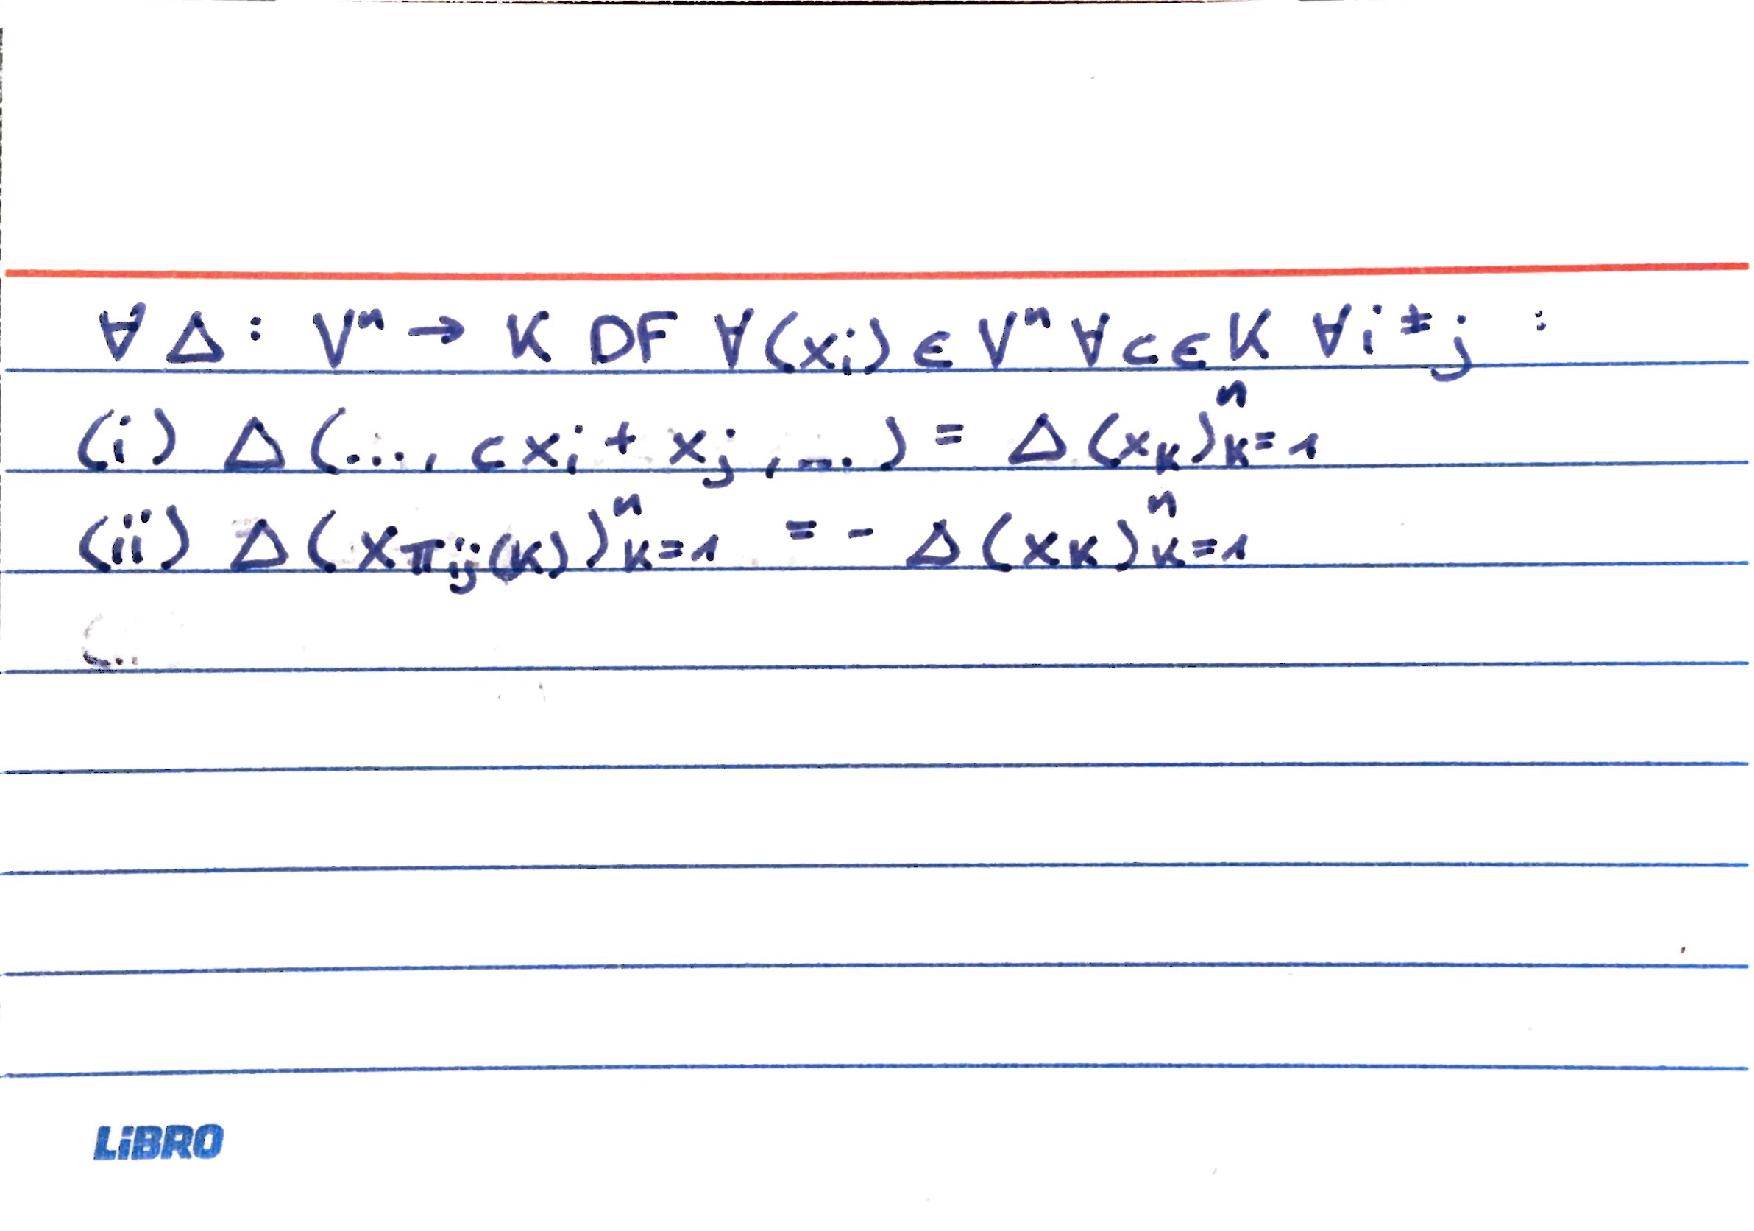 ∀ Δ : Vⁿ → K DF ∀(xᵢ) ∈ Vⁿ ∀c∈K ∀i≠j :
(i) Δ(..., cxᵢ + xⱼ, ...) = Δ(x_k)ⁿ_{k=1}
(ii) Δ(x_{π_{ij}(k)})ⁿ_{k=1} = - Δ(x_k)ⁿ_{k=1}
LiBRO